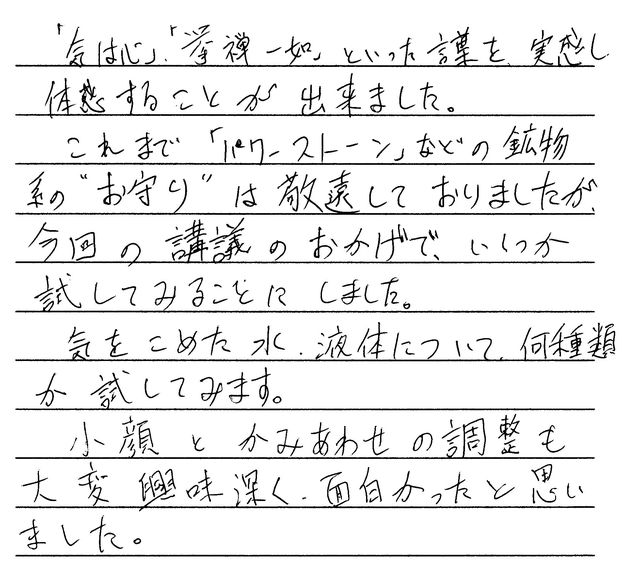 「気は心」、「拳禅一如」といった言葉を、実感し
体感することが出来ました。
これまで「パワーストーン」などの鉱物
系の“お守り”は敬遠しておりましたが、
今回の講議のおかげで、いくつか
試してみることにしました。
気をこめた水、液体について、何種類
か試してみます。
小顔とかみあわせの調整も
大変興味深く、面白かったと思い
ました。